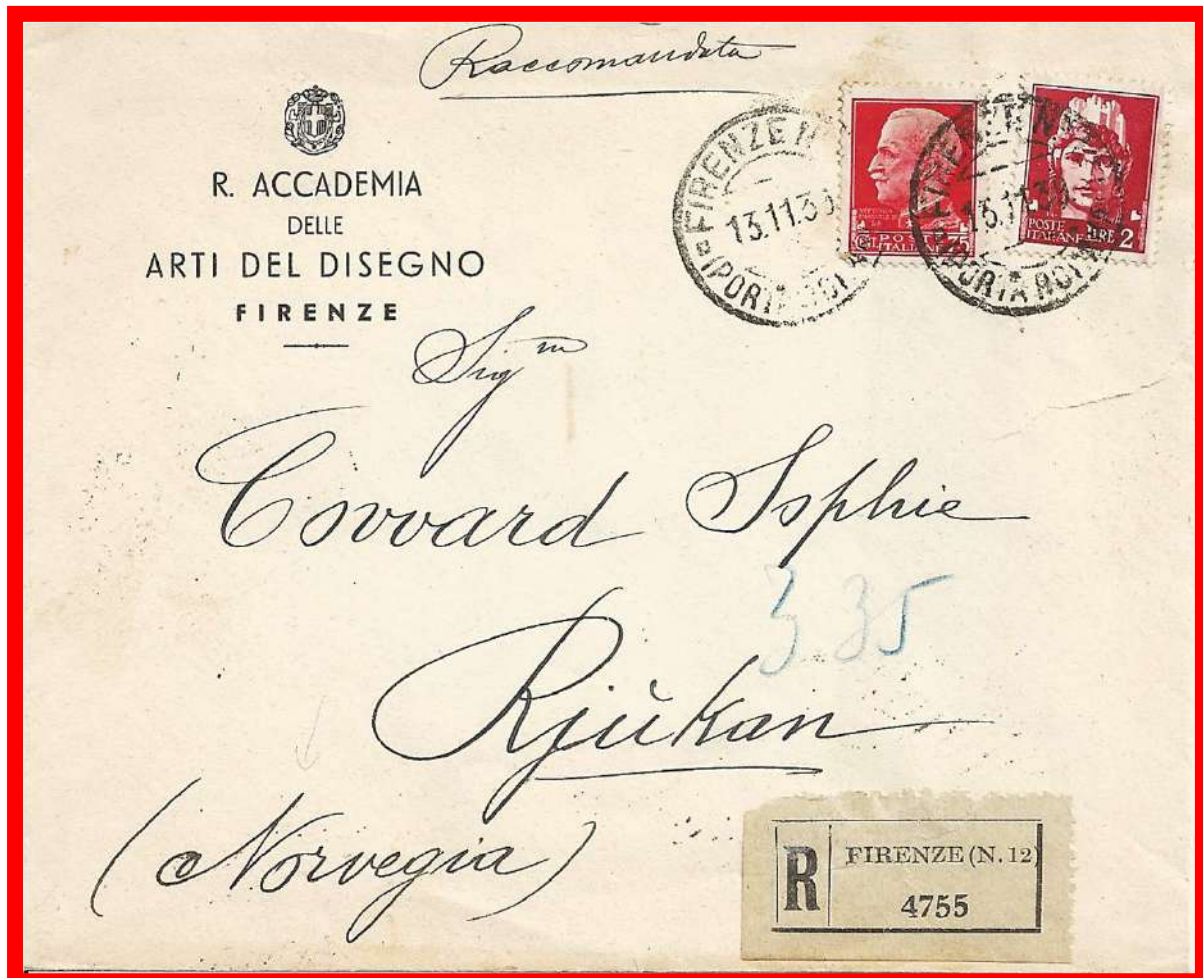 Raccomandata
R. ACCADEMIA
DELLE
ARTI DEL DISEGNO
FIRENZE
FIRENZE N
13.11.39
POSTE
ITALIANE LIRE 2
Sig
Covvard Sophie
3.35
Rjukan
(Norvegia)
R FIRENZE (N. 12)
4755